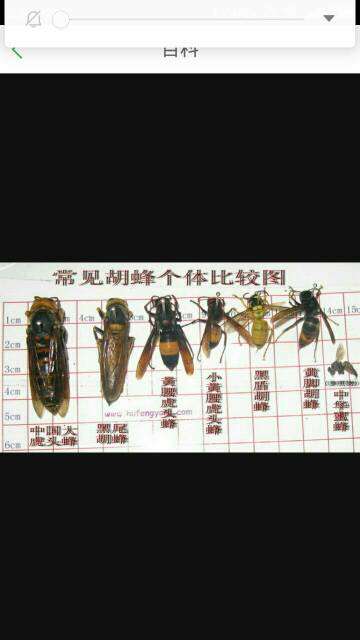 百科
常见胡蜂个体比较图
1cm
4cm
14cm
15c
2cm
3cm
4cm
5cm
6cm
中国大
虎头蜂
黑尾
胡蜂
黄腰虎头蜂
小黄腰虎头蜂
黑盾胡蜂
黄脚胡蜂
中华蜜蜂
www.hufengyang.com